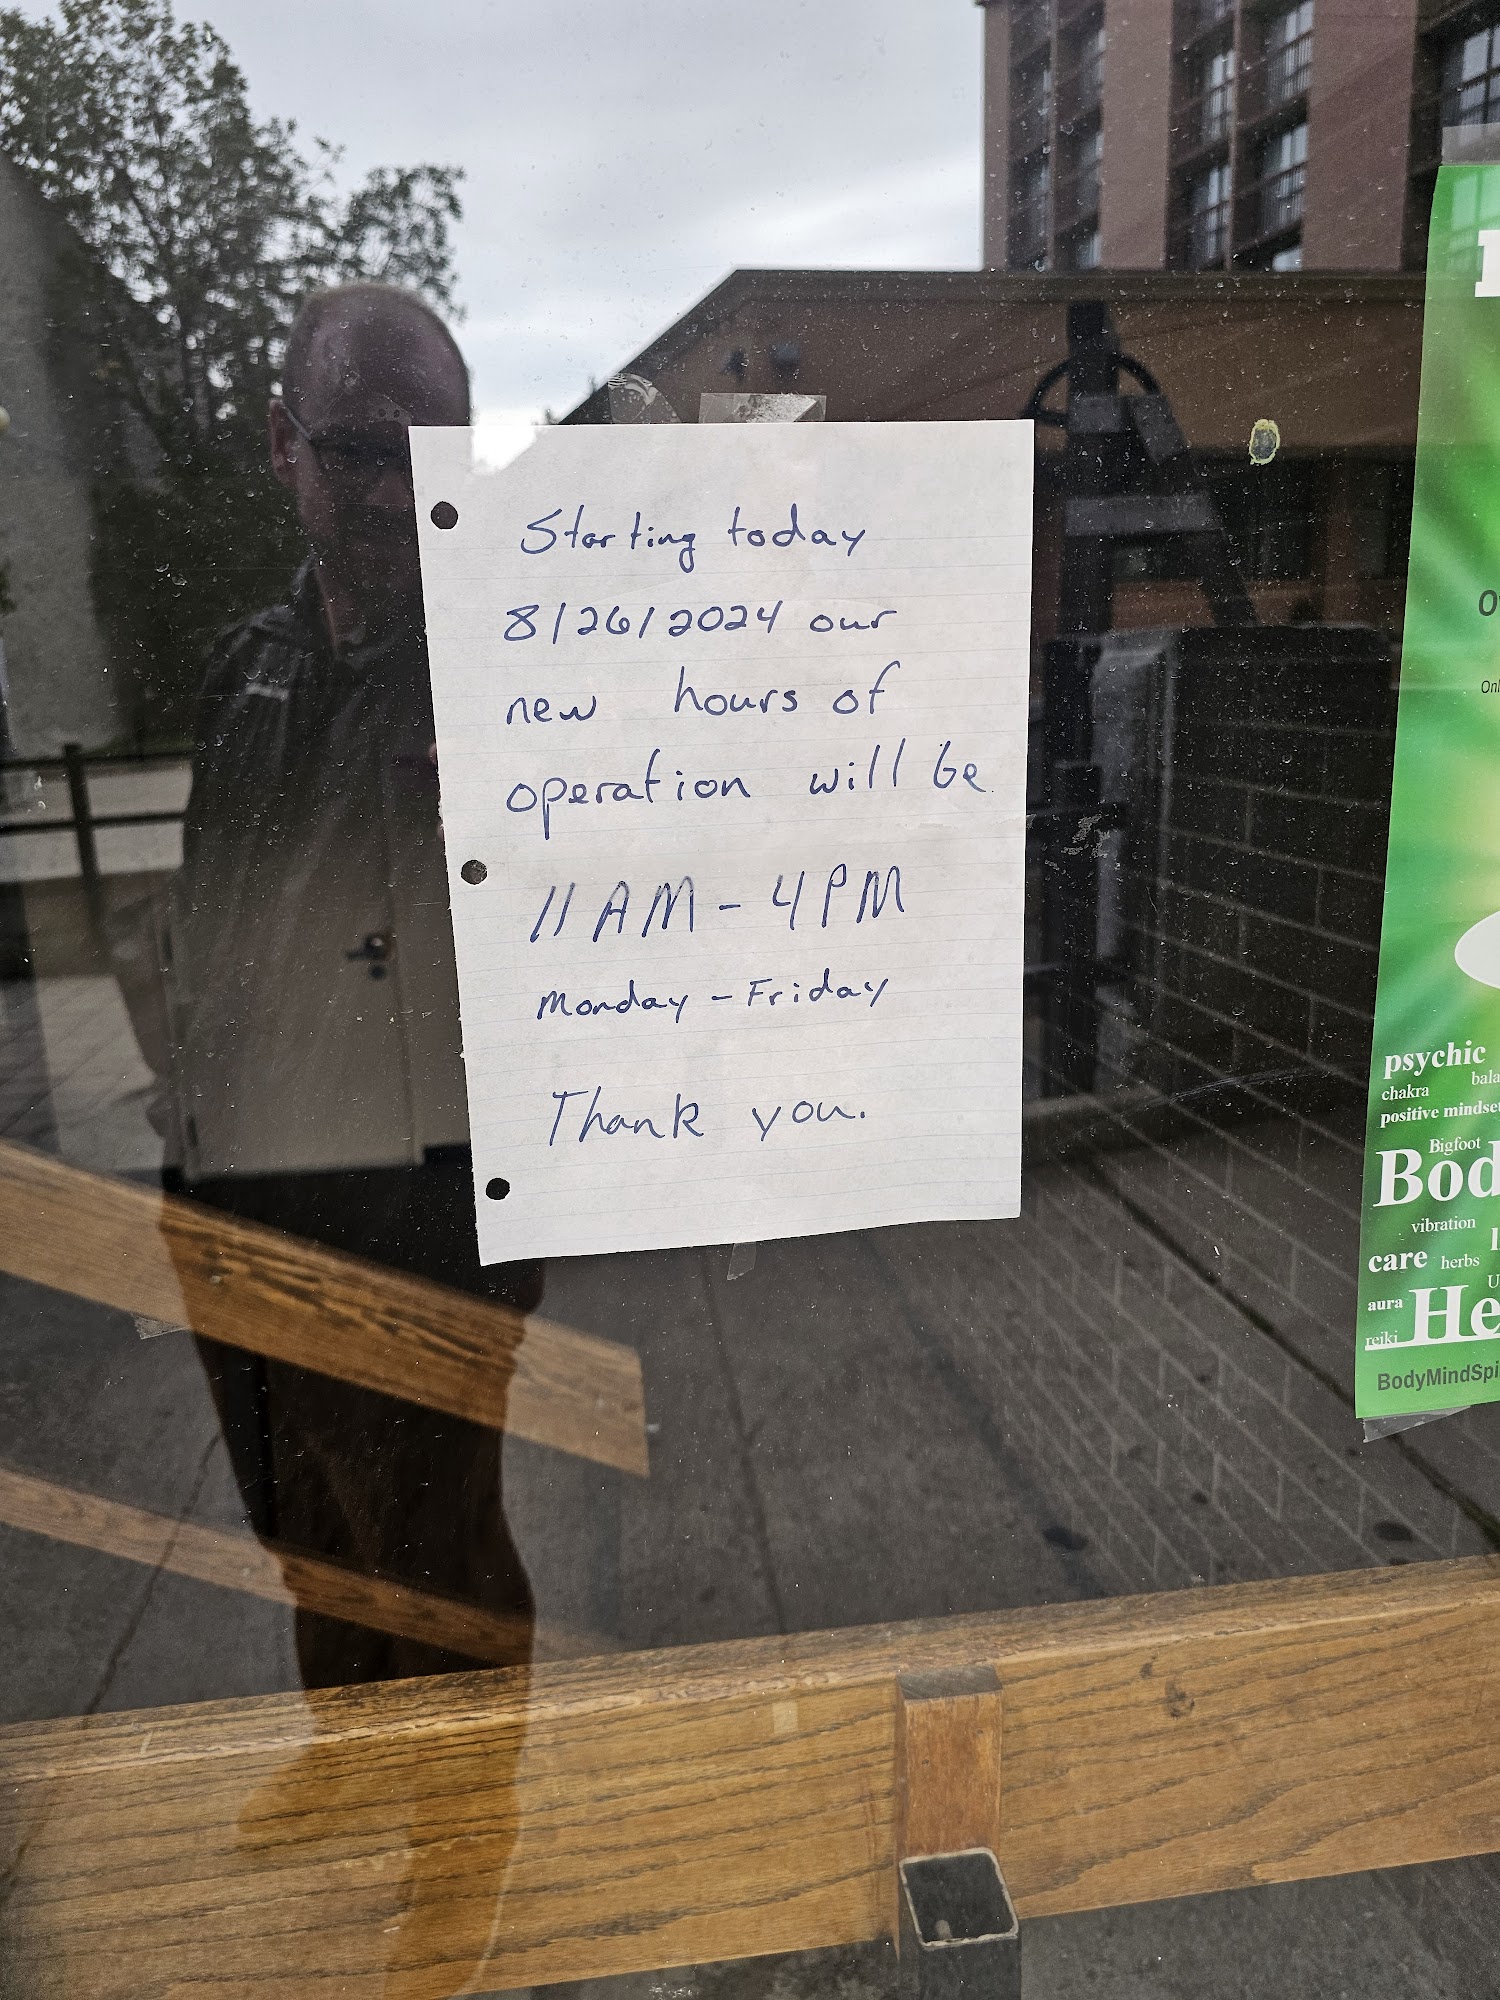 Starting today
8/26/2024 our
new hours of
operation will be
11 AM - 4 PM
Monday - Friday
Thank you.
psychic
chakra
positive mindset
Bigfoot
vibration
care herbs
aura
reiki